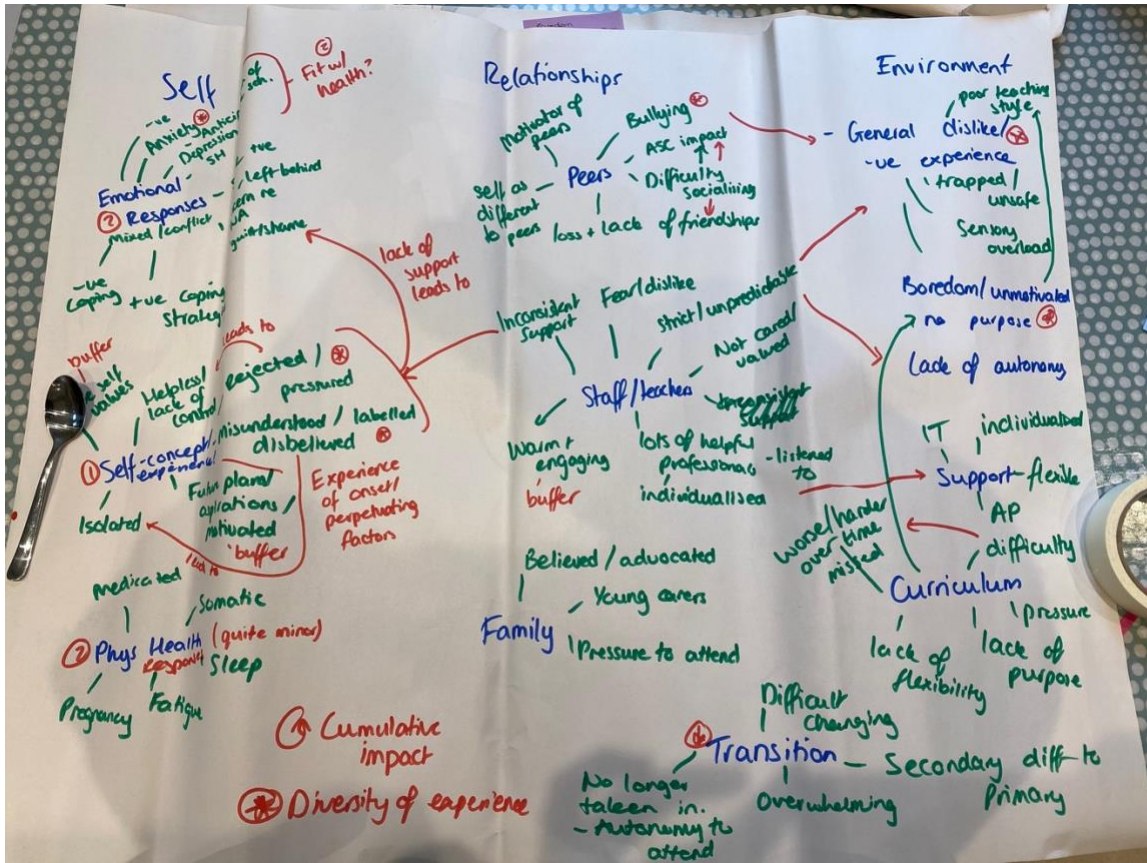 Self
of
sch.
②
Fit w/
health?
-ve
Anxiety
Depression
SH
+ve
left behind
Emotional
② Responses
Mixed/conflict
guilt/shame
-ve
coping
+ve coping
strategy
buffer
self
values
leads to
Helpless/
lack of
control
Rejected/
pressured
misunderstood / labelled
disbelieved
① Self-concept/
experience
Isolated
Future plans/
aspirations/
motivated
buffer
lead to
Experience
of onset/
perpetuating
factors
lack of
support
leads to
Medicated
Somatic
Phys Health (quite minor)
Response
Sleep
Pregnancy
Fatigue
Cumulative
impact
Diversity of experience
Relationships
Motivator of
peers
Bullying
ASC impact
Peers
Difficulty
socialising
self as
different
to peers
loss + lack of friendships
Inconsistent
support
Fear/dislike
strict/unpredictable
Not cared/
valued
Staff/teachers
Inconsistent
support
Warm +
engaging
buffer
lots of helpful
professionals
- listened
to
individualised
Believed / advocated
Young carers
Family
Pressure to attend
Environment
poor teaching
style
- General dislike/
-ve experience
trapped/
unsafe
Sensory
overload
Boredom/unmotivated
no purpose
lack of autonomy
IT
individualised
Support - flexible
AP
worse/harder
over time
missed
difficulty
Curriculum
pressure
lack of
flexibility
lack of
purpose
Difficult
changing
Transition - Secondary diff to
Primary
No longer
taken in.
- Autonomy to
attend
Overwhelming